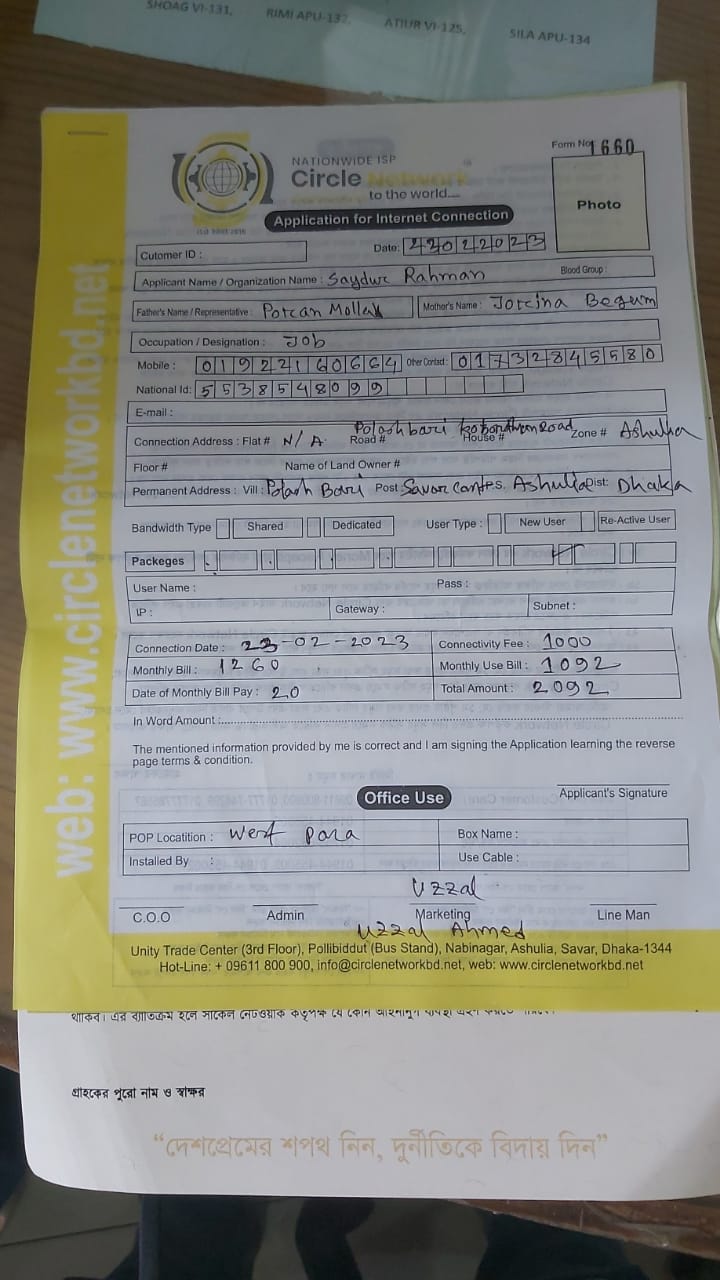 SHOAG VI-131, RIMI APU-132, ATIUR VI-125, SILA APU-134
Form No 1660
NATIONWIDE ISP
Circle Network
to the world....
ISO 9001:2015
Photo
Application for Internet Connection
Cutomer ID :
Date: 22022023
Applicant Name / Organization Name : Saydur Rahman Blood Group :
Father's Name / Representative : Porcan Mollah Mother's Name : Jorcina Begum
Occupation / Designation : Job
Mobile : 01922160664 Other Contact : 01732845580
National Id: 5538548099
E-mail :
Connection Address : Flat # N/A Road # Polashbari House # Road Zone # Ashulia
Floor # Name of Land Owner #
Permanent Address : Vill : Polash Bari Post Savar Cant P.S. Ashulia Dist: Dhaka
Bandwidth Type Shared Dedicated User Type : New User Re-Active User
Packeges
User Name : Pass :
IP : Gateway : Subnet :
Connection Date : 23-02-2023 Connectivity Fee : 1000
Monthly Bill : 1260 Monthly Use Bill : 1092
Date of Monthly Bill Pay : 20 Total Amount : 2092
In Word Amount :
The mentioned information provided by me is correct and I am signing the Application learning the reverse
page terms & condition.
Applicant's Signature
Office Use
POP Locatition : West Para Box Name :
Installed By : Use Cable :
Uzzal
C.O.O Admin Marketing Line Man
Uzzal Ahmed
Unity Trade Center (3rd Floor), Pollibiddut (Bus Stand), Nabinagar, Ashulia, Savar, Dhaka-1344
Hot-Line: + 09611 800 900, info@circlenetworkbd.net, web: www.circlenetworkbd.net
web: www.circlenetworkbd.net
গ্রাহকের পুরো নাম ও স্বাক্ষর
“দেশপ্রেমের শপথ নিন, দুর্নীতিকে বিদায় দিন”